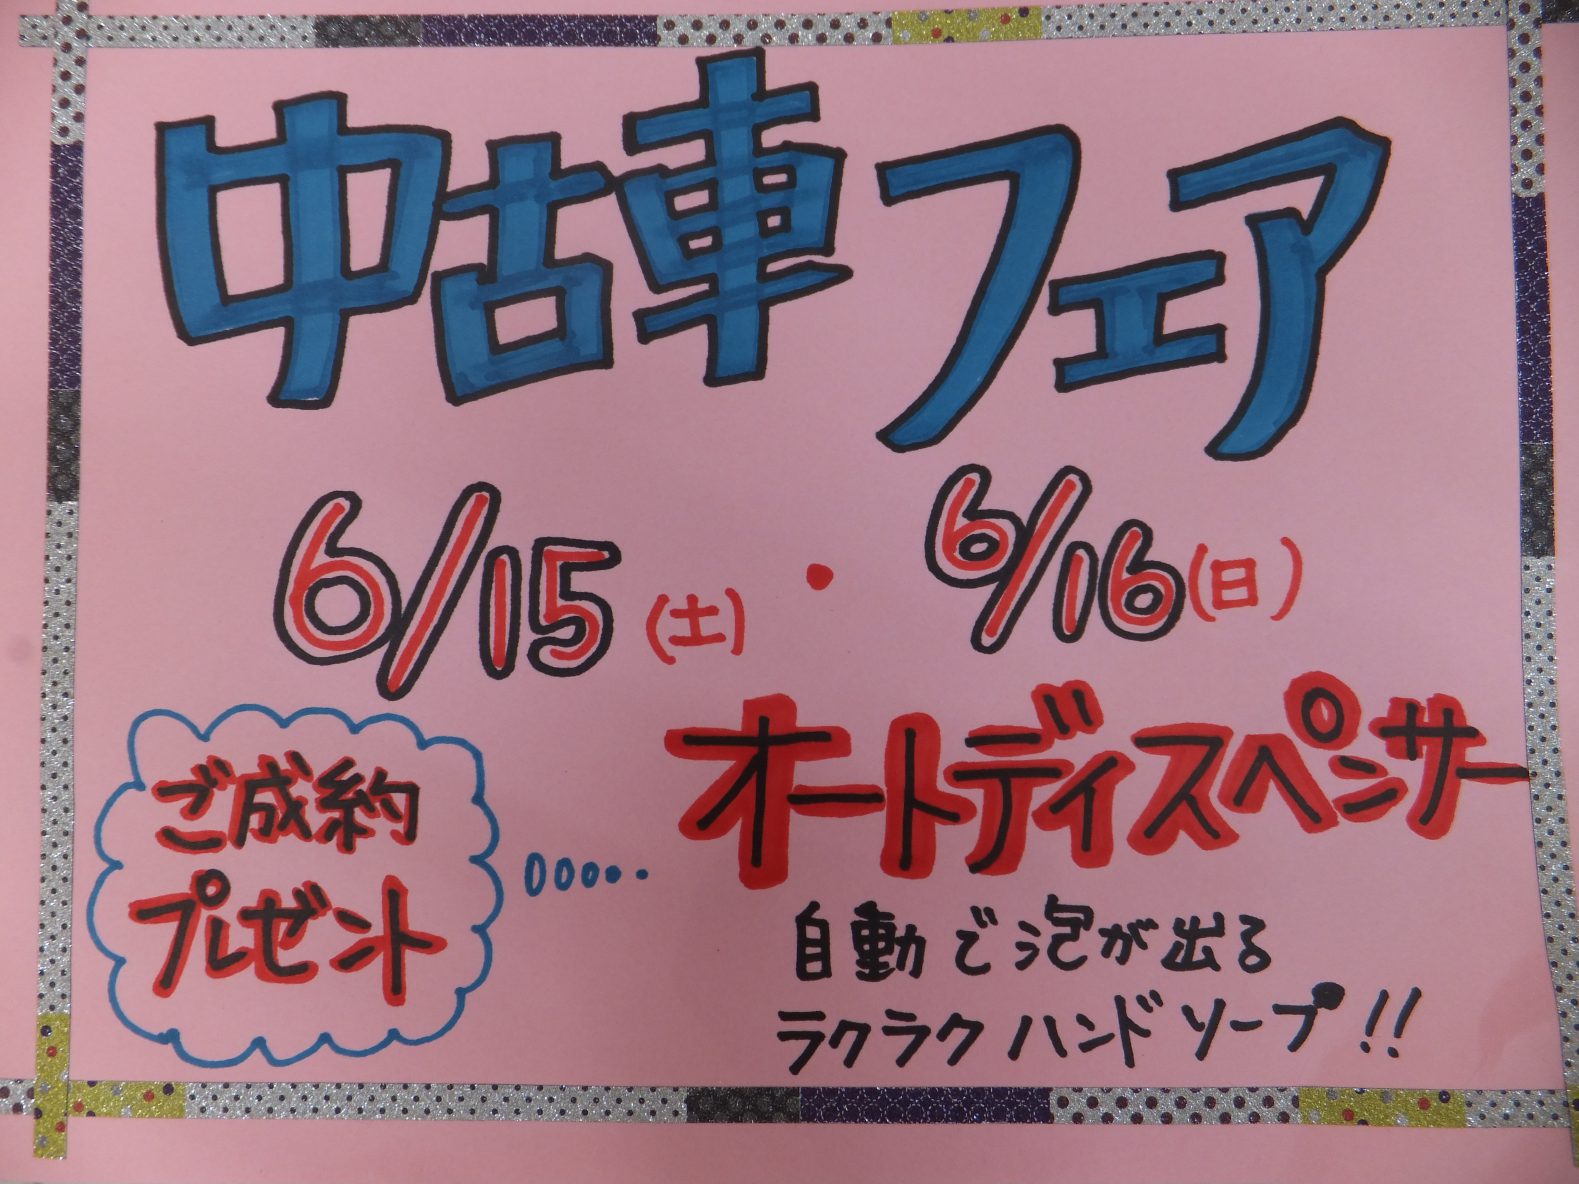 中古車フェア
6/15(土)・6/16(日)
ご成約
プレゼント
オートディスペンサー
自動で泡が出る
ラクラクハンドソープ!!